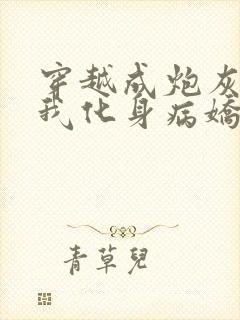 穿越成炮灰
我化身病嬌
青草兒